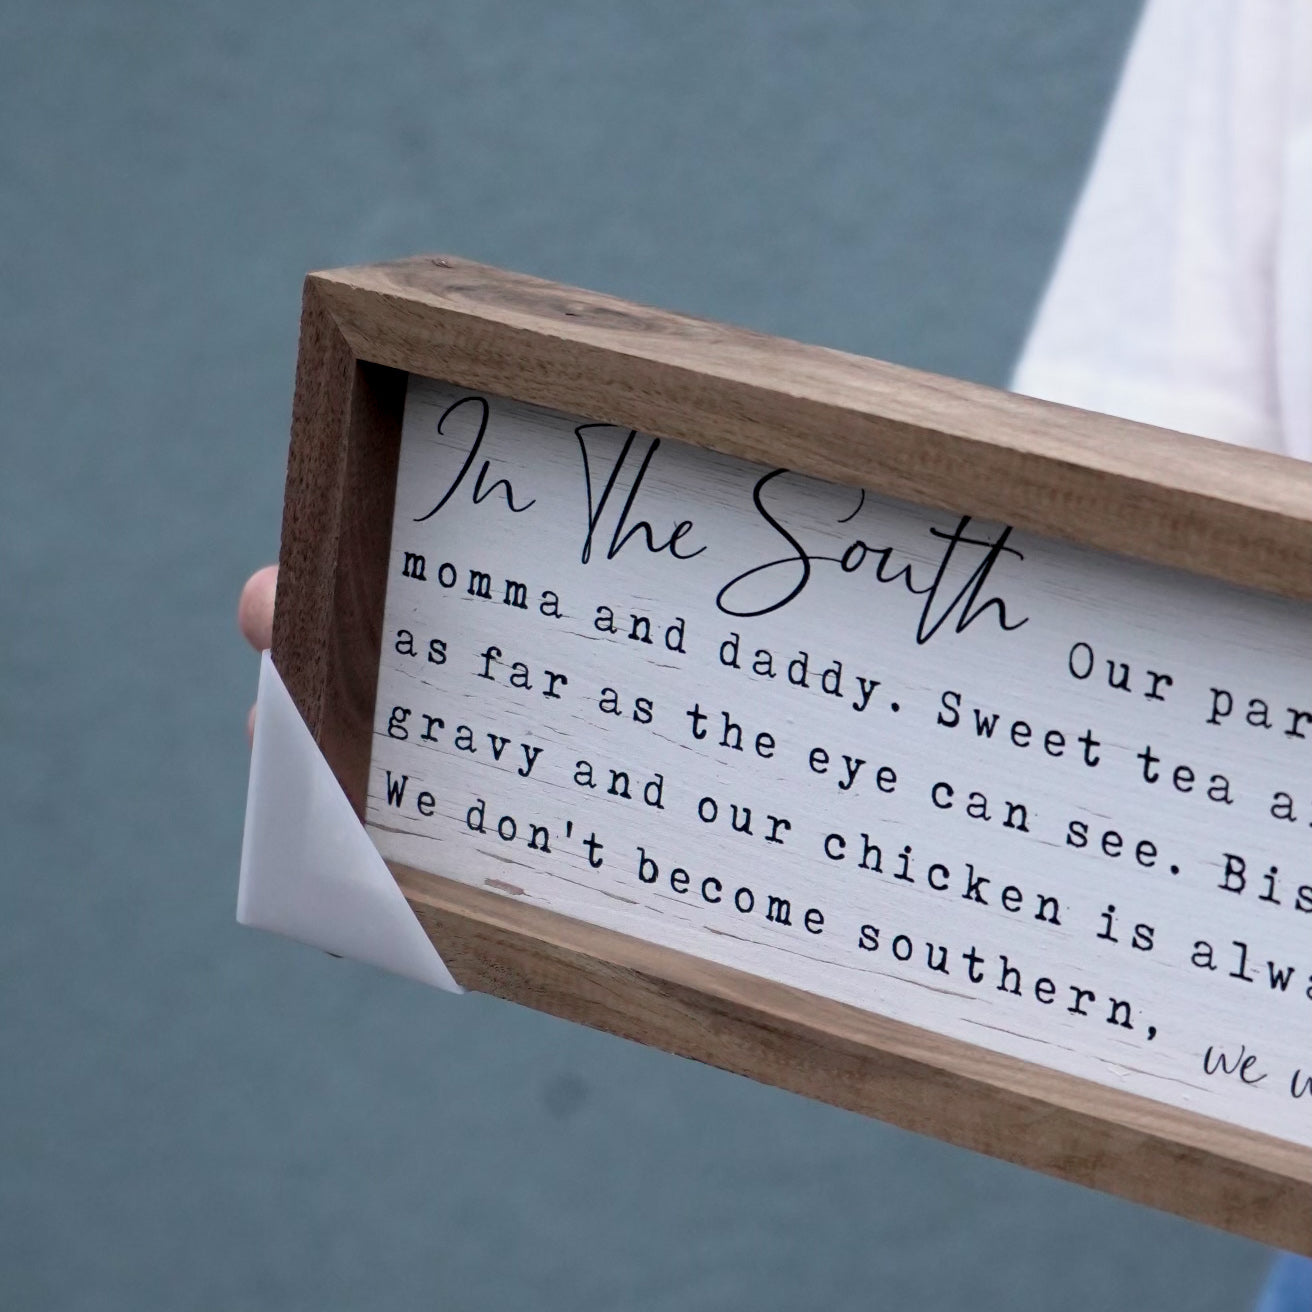 In The South Our
momma and daddy. Sweet tea
as far as the eye can see.
gravy and our chicken is
We don't become southern, we